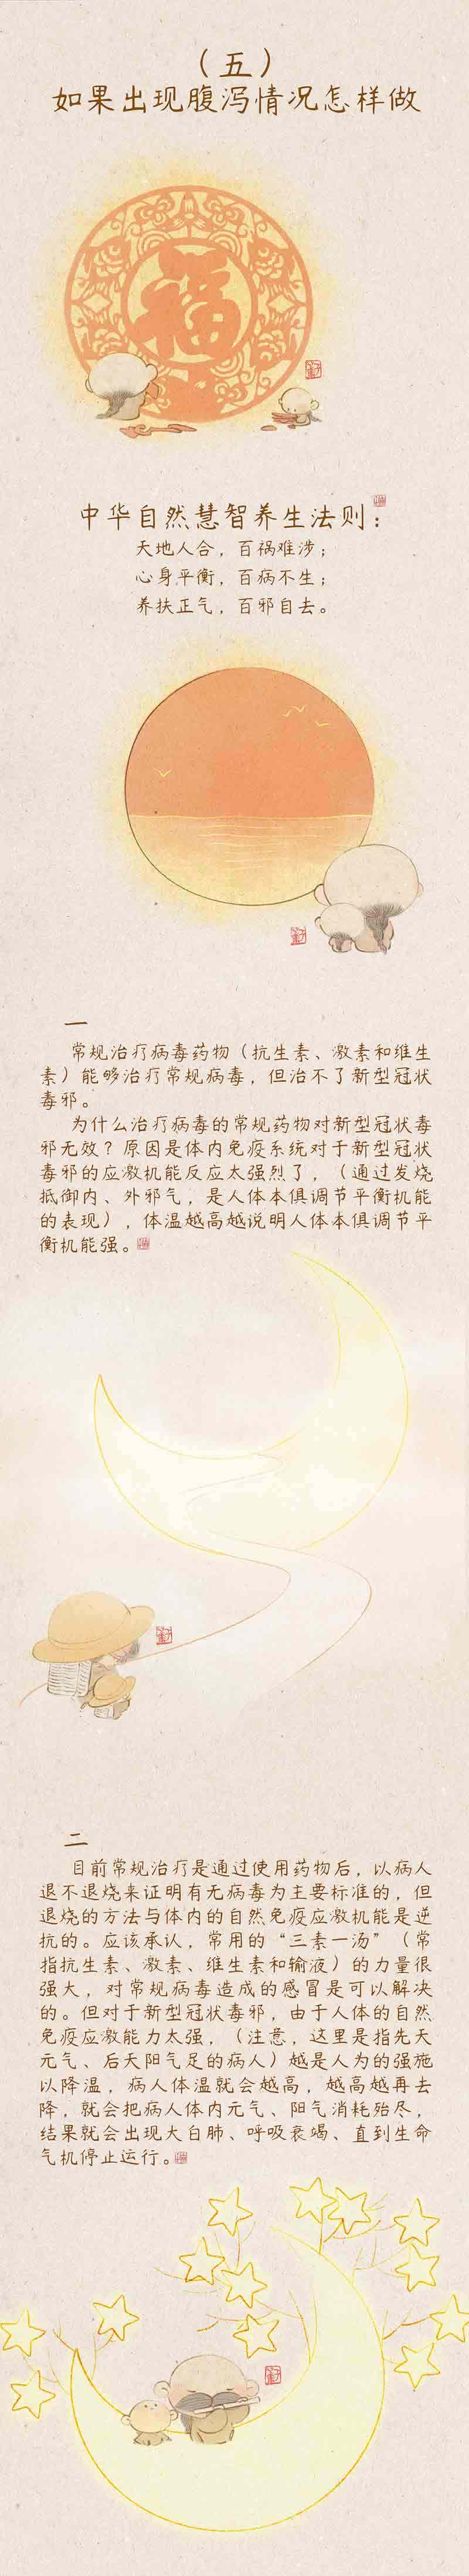 （五）
如果出现腹泻情况怎样做
福
中华自然慧智养生法则：
天地人合，百祸难涉；
心身平衡，百病不生；
养扶正气，百邪自去。
一
常规治疗病毒药物（抗生素、激素和维生
素）能够治疗常规病毒，但治不了新型冠状
毒邪。
为什么治疗病毒的常规药物对新型冠状毒
邪无效？原因是体内免疫系统对于新型冠状
毒邪的应激机能反应太强烈了，（通过发烧
抵御内、外邪气，是人体本俱调节平衡机能
的表现），体温越高越说明人体本俱调节平
衡机能强。
二
目前常规治疗是通过使用药物后，以病人
退不退烧来证明有无病毒为主要标准的，但
退烧的方法与体内的自然免疫应激机能是逆
抗的。应该承认，常用的“三素一汤”（常
指抗生素、激素、维生素和输液）的力量很
强大，对常规病毒造成的感冒是可以解决
的。但对于新型冠状毒邪，由于人体的自然
免疫应激能力太强，（注意，这里是指先天
元气、后天阳气足的病人）越是人为的强施
以降温，病人体温就会越高，越高越再去
降，就会把病人体内元气、阳气消耗殆尽，
结果就会出现大白肺、呼吸衰竭、直到生命
气机停止运行。